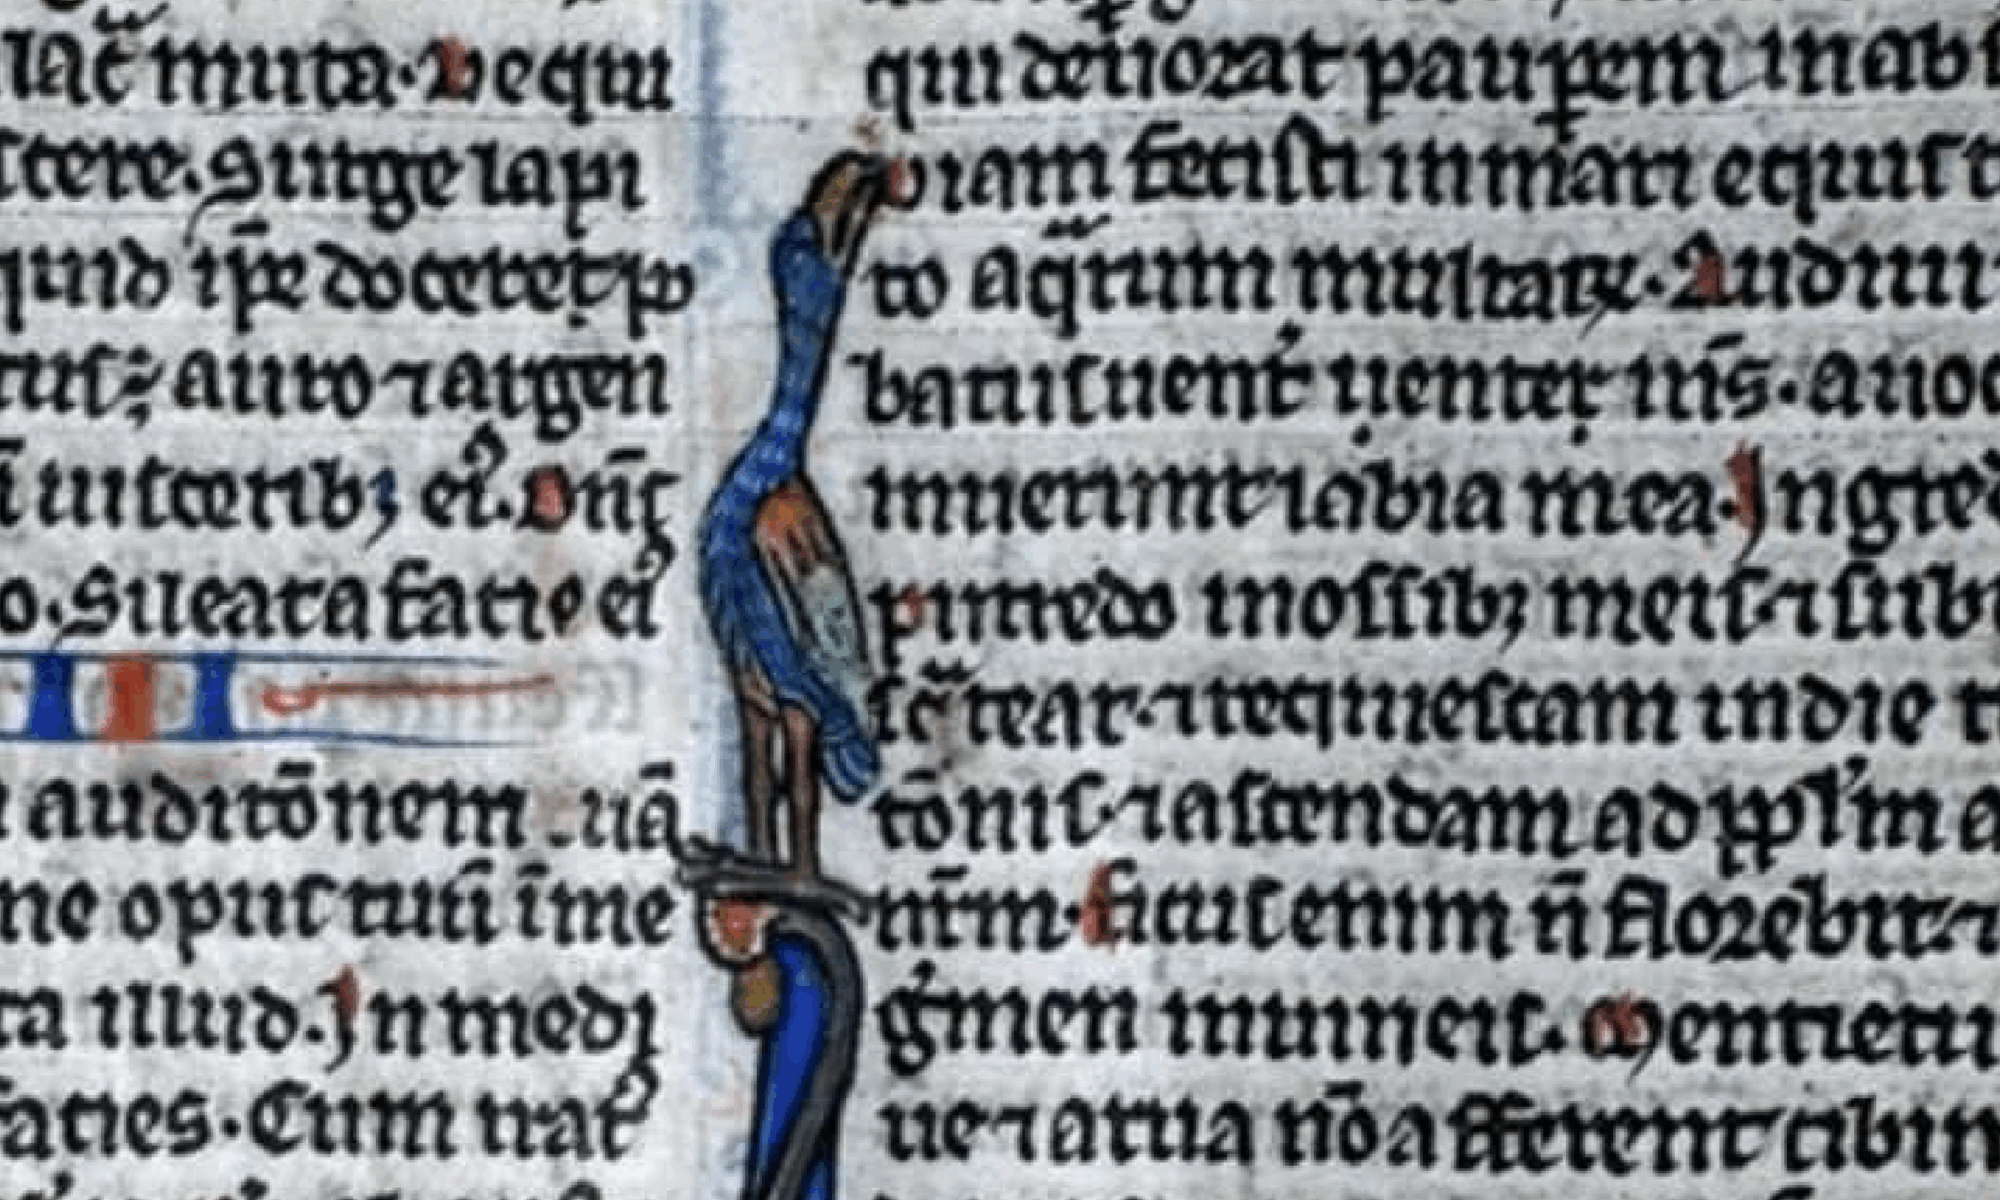 lac̄ muta. Ve qui
stere. Surge lapi
quid ip̄e docere pot
tus: auro ⁊ argen
ī uisceribꝫ eiꝰ. Dn̄s
o. Sileat a facie eiꝰ
auditōnem tuā
ne opus tuū ī me
ta illud. In medi
facies. Cum irat
qui deuorat paupem in ab
Viam fecisti in mari equis t
to aq̄rum multarꝝ. Audiui
batus uent̄ uenter m̄s. a uoc
muerunt labia mea. Ingred
putredo in ossibꝫ meis ⁊ sub
scateat. ⁊ requiescam in die t
tōnis. ⁊ ascendam ad ppl'm a
nr̄m. Ficus enim n̄ florebit. ⁊
gʼmen in uineis. Mentietu
ue ⁊ arua nō afferent cibū